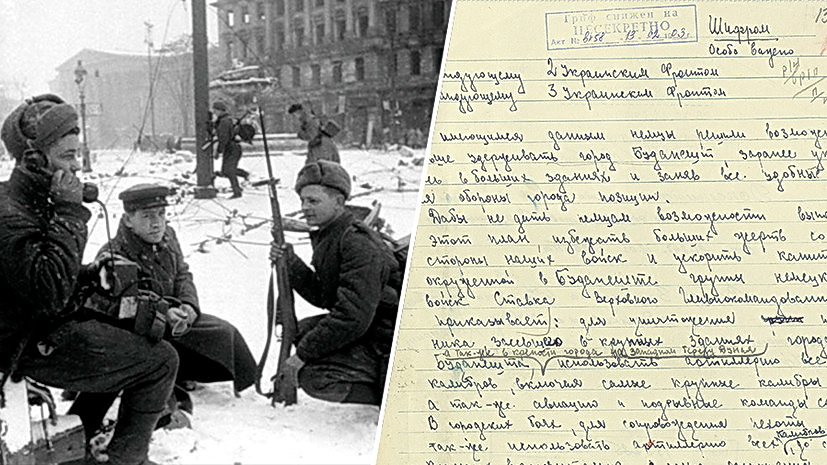 Гриф снижен на
НЕСЕКРЕТНО
Акт №
Шифром
Особо важно
ндующему 2 Украинским Фронтом
ндующему 3 Украинским Фронтом
имеющимся данным немцы решили возможно
удерживать город Будапешт, заранее
в больших зданиях и заняв все удобные
я обороны города позиции.
Дабы не дать немцам возможности
этот план, избежать больших жертв со
стороны наших войск и ускорить
окруженной в Будапеште группы немецких
войск Ставка Верховного Главнокомандования
приказывает: для уничтожения
ника засевшего в крупных зданиях города
а так-же в крепости города на западном берегу Дуная
Будапешта использовать артиллерию всех
калибров, включая самые крупные калибры
А так-же авиацию и подрывные команды
В городских боях для сопровождения пехоты
так-же использовать артиллерию всех калибров